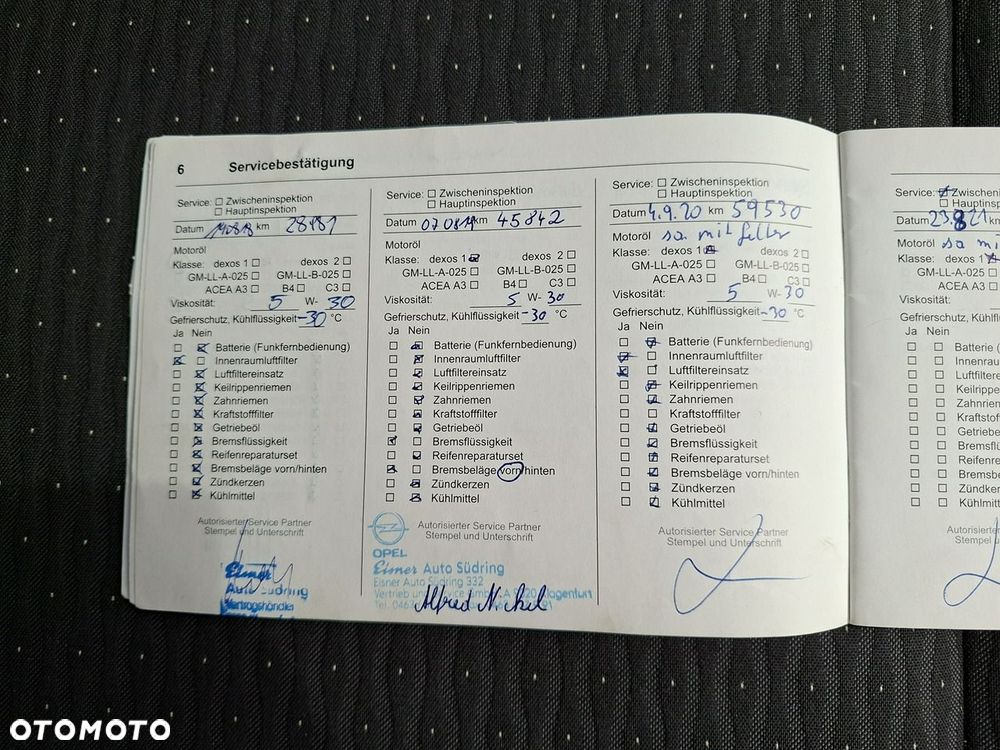 6 Servicebestätigung
Service: Zwischeninspektion
Hauptinspektion
Datum km 28481
Motoröl
Klasse: dexos 1 dexos 2
GM-LL-A-025 GM-LL-B-025
ACEA A3 B4 C3
Viskosität: 5 W- 30
Gefrierschutz, Kühlflüssigkeit -30 °C
Ja Nein
Batterie (Funkfernbedienung)
Innenraumluftfilter
Luftfiltereinsatz
Keilrippenriemen
Zahnriemen
Kraftstofffilter
Getriebeöl
Bremsflüssigkeit
Reifenreparaturset
Bremsbeläge vorn/hinten
Zündkerzen
Kühlmittel
Autorisierter Service Partner
Stempel und Unterschrift
Eisner
Auto Südring
Vertragshändler
Service: Zwischeninspektion
Hauptinspektion
Datum 070819 km 45842
Motoröl
Klasse: dexos 1 dexos 2
GM-LL-A-025 GM-LL-B-025
ACEA A3 B4 C3
Viskosität: 5 W- 30
Gefrierschutz, Kühlflüssigkeit -30 °C
Ja Nein
Batterie (Funkfernbedienung)
Innenraumluftfilter
Luftfiltereinsatz
Keilrippenriemen
Zahnriemen
Kraftstofffilter
Getriebeöl
Bremsflüssigkeit
Reifenreparaturset
Bremsbeläge vorn/hinten
Zündkerzen
Kühlmittel
Autorisierter Service Partner
Stempel und Unterschrift
OPEL
Eisner Auto Südring
Eisner Auto Südring 332
Vertrieb und Service A 9020 Klagenfurt
Tel. 
Alfred Nikel
Service: Zwischeninspektion
Hauptinspektion
Datum 4.9.20 km 59530
Motoröl sa. mit filter
Klasse: dexos 1 dexos 2
GM-LL-A-025 GM-LL-B-025
ACEA A3 B4 C3
Viskosität: 5 W- 30
Gefrierschutz, Kühlflüssigkeit -30 °C
Ja Nein
Batterie (Funkfernbedienung)
Innenraumluftfilter
Luftfiltereinsatz
Keilrippenriemen
Zahnriemen
Kraftstofffilter
Getriebeöl
Bremsflüssigkeit
Reifenreparaturset
Bremsbeläge vorn/hinten
Zündkerzen
Kühlmittel
Autorisierter Service Partner
Stempel und Unterschrift
Service: Zwischen
Hauptins
Datum 23.8.21 km
Motoröl sa mi
Klasse: dexos 1
GM-LL-A-025
ACEA A3
Viskosität:
Gefrierschutz, Kühlflü
Ja Nein
Batterie (
Innenraum
Luftfiltere
Keilrippen
Zahnrieme
Kraftstoff
Getriebeö
Bremsflüs
Reifenrep
Bremsbel
Zündkerz
Kühlmitte
Autorisi
Stemp
OTOMOTO